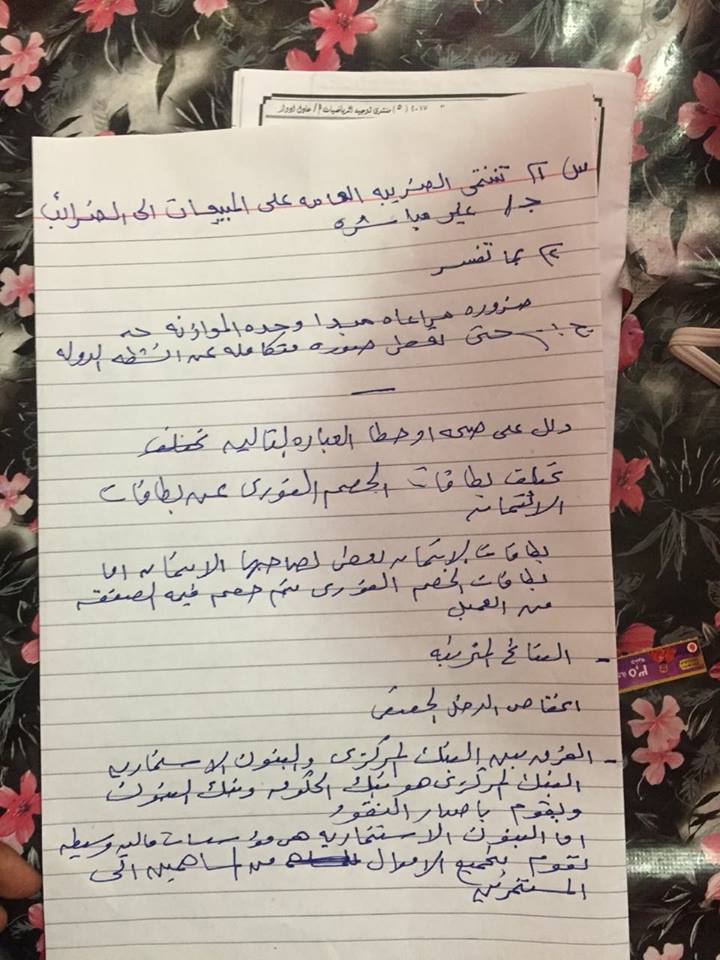 ٢٠١٧ (٥) منتدى توجيه الرياضيات أ/ عادل ادوار
س ٢١ تنتمى الضريبه العامه على المبيعات الى الضرائب
جـ/ غير مباشره
٢٢ بما تفسر
ضروره مراعاه مبدا وحده الموازنه
جـ ١ - حتى تعطى صوره متكامله عن انشطه الدوله
دلل على صحه او خطا العباره لتاليه تختلف
تختلف بطاقات الخصم الفورى عن بطاقات
الائتمان
بطاقات الائتمان تعطى لصاحبها الائتمان اما
بطاقات الخصم الفورى يتم خصم فيه الصفقه
من العميل
- النتائج المترتبه
انخفاض الدخل الحقيقى
- الفرق بين البنك المركزى والبنوك الاستثماريه
البنك المركزى هو بنك الحكومه وبنك البنوك
ويقوم باصدار النقود
اما البنوك الاستثماريه هى مؤسسات ماليه وسيطه
تقوم بتجميع الاموال من المساهمين الى
المستثمرين
٣.٥